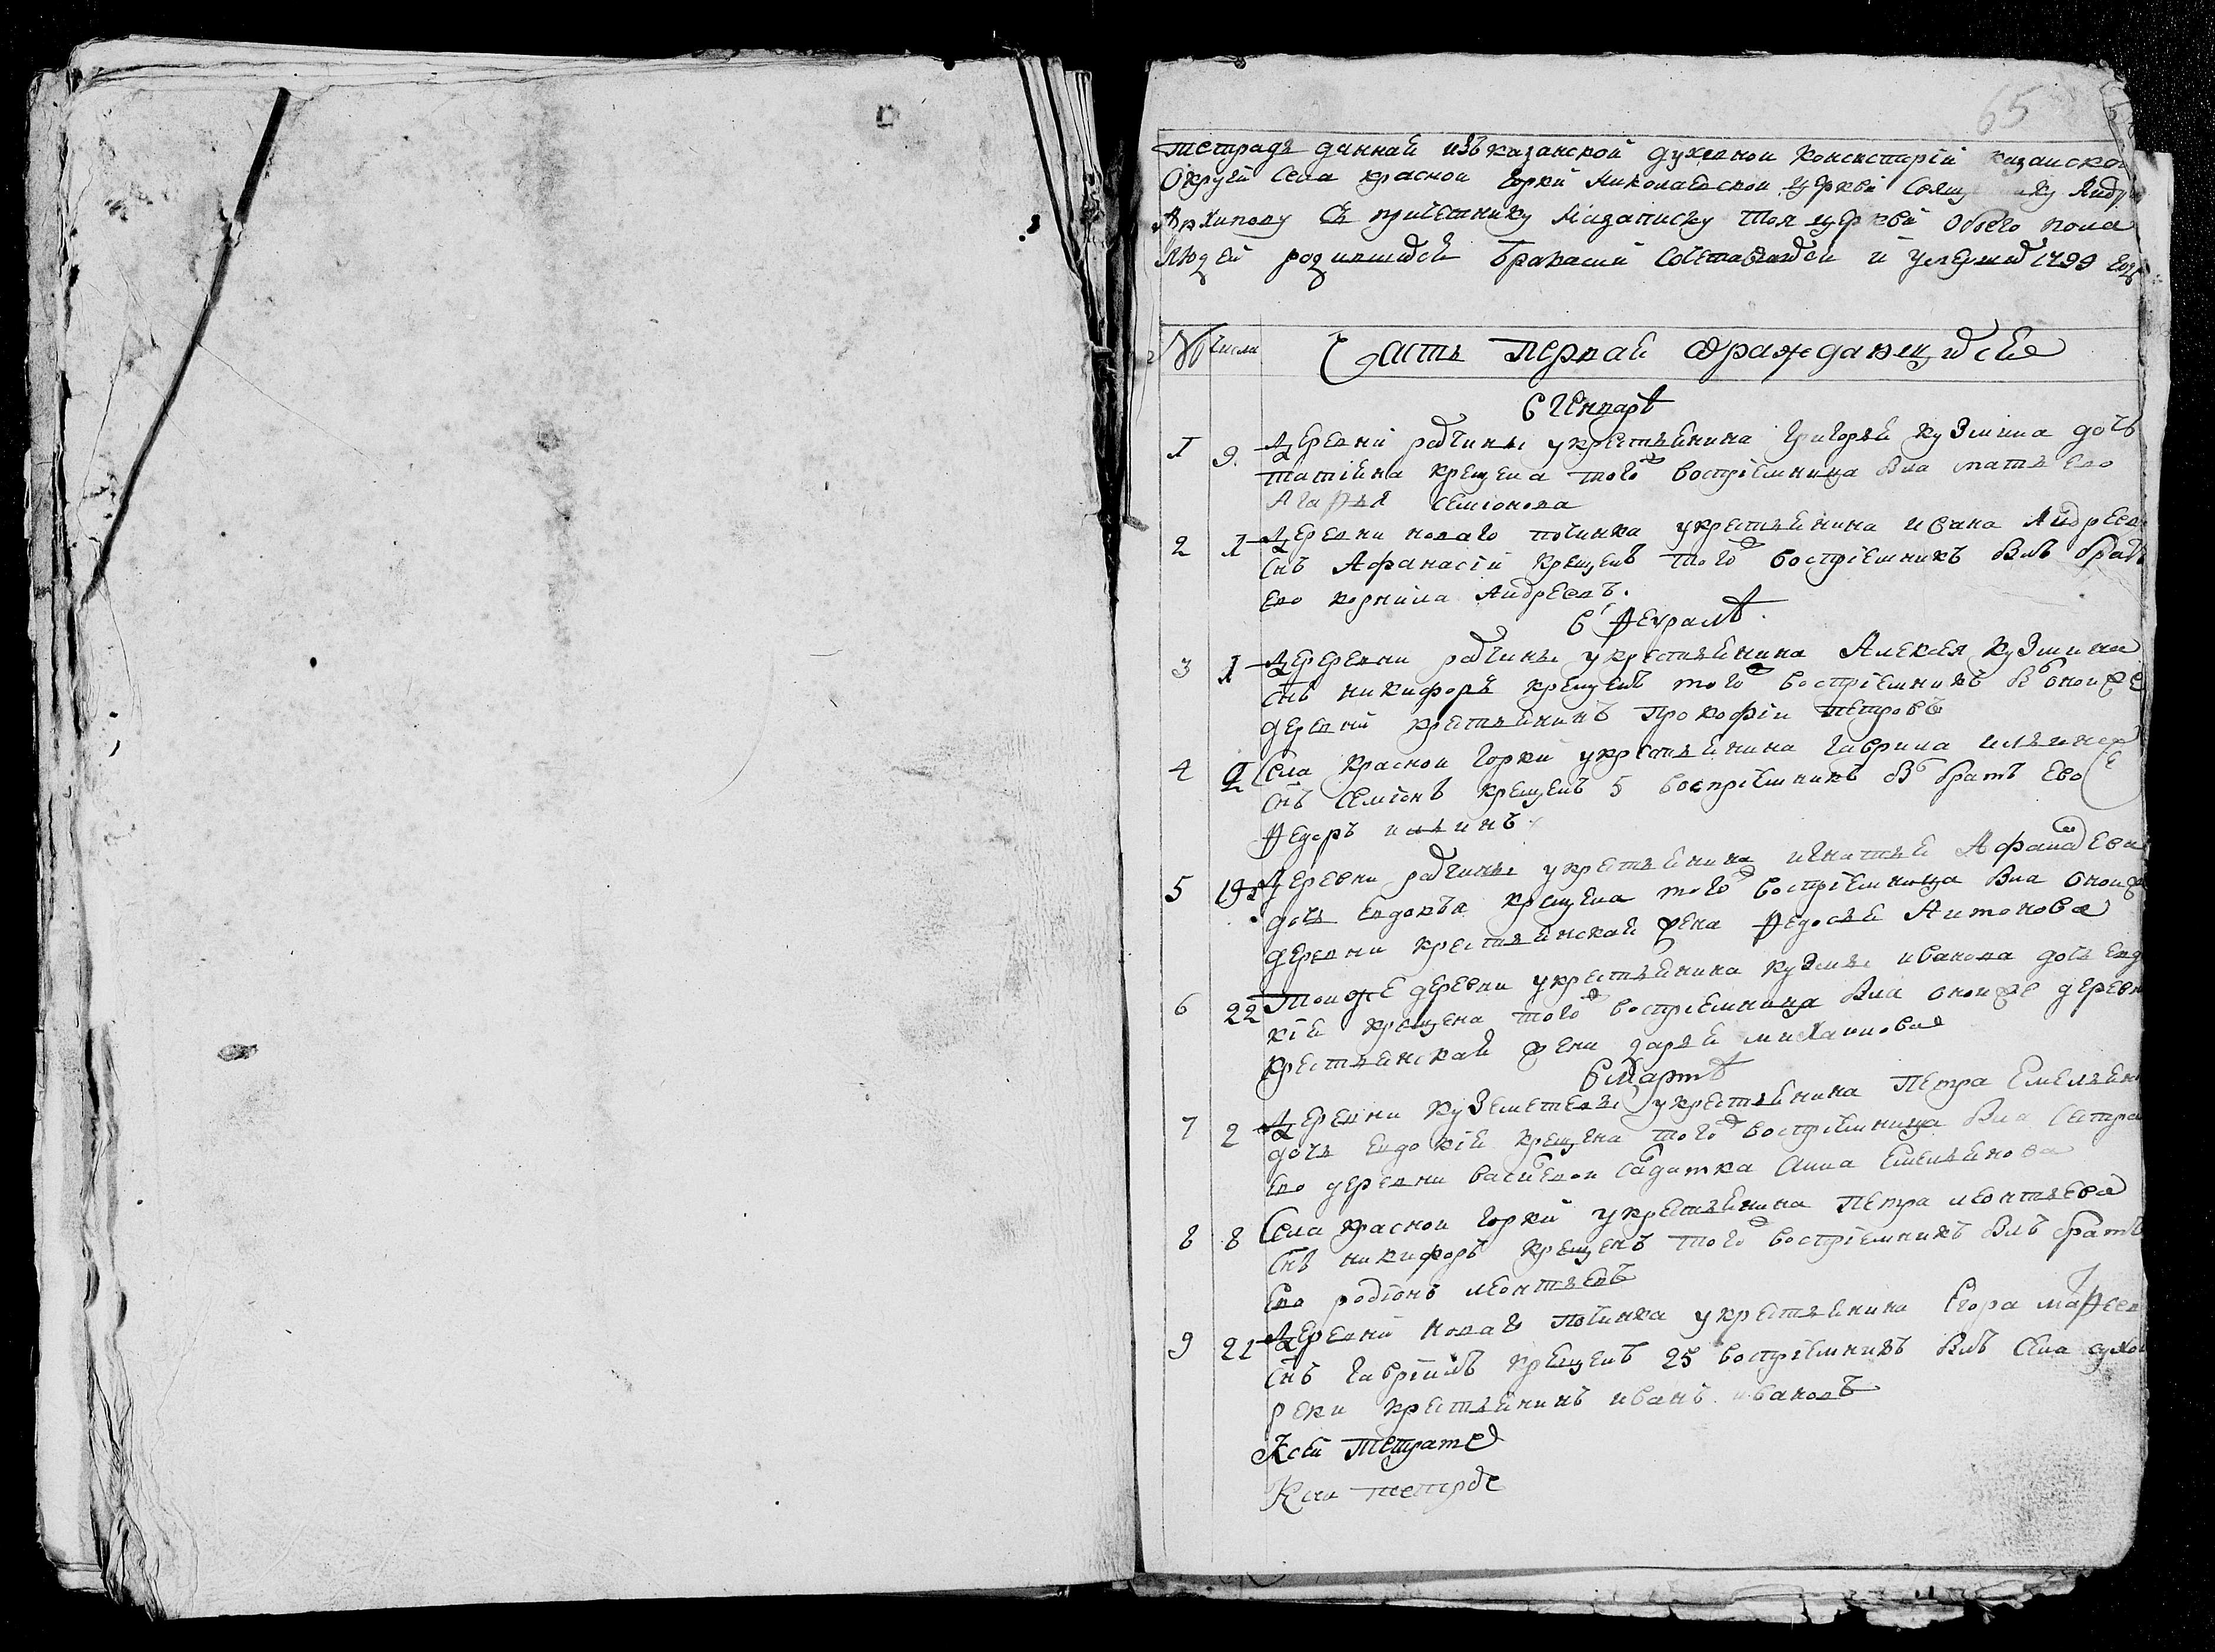 65
тетрадь данная изъ казанской духовнои консистории казанской
Округи села красной горки Николаевской церкви Священнику Андрею
Архипову съ причетнику Назаписку той церкви обоего пола
людей родившихся браками сочетавшихся и умерших 1799 году
№ числа Часть первая ораждающихся
в Генваре
1 9 Деревни рачины укрестьянина Григорья Кузмина дочь
татияна крещена того восприемница была мать Ево
Агафья семионова
2 1 Деревни новаго починка укрестьянина ивана Андреева
снъ Афанасiй крещенъ того восприемникъ былъ братъ
Ево корнила Андреевъ.
в Феврале
3 1 Дереревни рачины укрестьянина Алексея кузмина
снъ никифоръ крещенъ того восприемникъ бы онои же
деревни крестьянинъ Прокофiи Петровъ
4 2 Села красной горки укрестьянина гаврила ильина
снъ семионъ крещенъ 5 восприемникъ бы братъ Ево
Федоръ ильинъ
5 19 Деревни рачины укрестьянина игнатья Афанасьева
дочь Евдокъя крещена того восприемница была оной же
деревни крестьянская жена Федосья Антонова
6 22 Той же деревни укрестьянина кузмы иванова дочь Евдо
кiя крещена того восприемница была оной же деревни
крестьянская жена дарья михаилова
в Марте
7 2 Деревни куземетева укрестьянина Петра Емельянова
дочь Евдокiя крещена того восприемница была сестра
Ево деревни васильевой салдатка анна Емельянова
8 8 Села красной горки укрестьянина Петра леонтьева
снъ никифоръ крещенъ того восприемникъ былъ братъ
Ево родiонъ леонтьевъ
9 21 Деревни новаго починка укрестьянина Егора мафеева
снъ гаврiилъ крещенъ 25 восприемникъ былъ села сухой
реки крестьянинъ иванъ ивановъ
Ксей тетрате
Ксеи тетрде